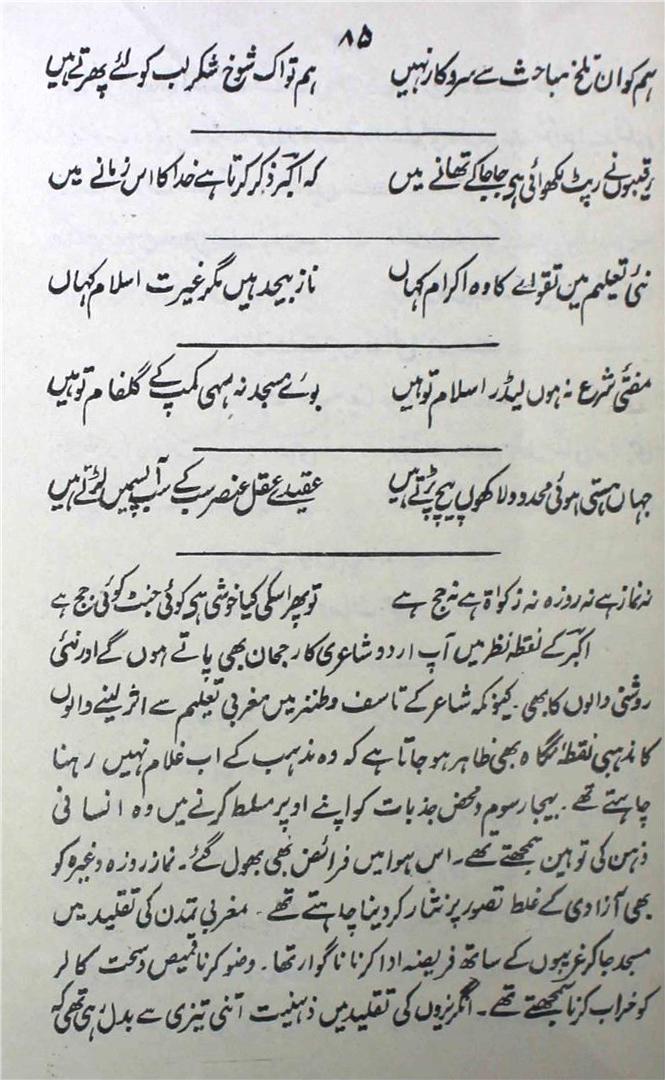 ۸۵
ہم کو ان تلخ مباحث سے سروکار نہیں ہم تو اک شوخ شکر لب کو لئے پھرتے ہیں
رقیبوں نے رپٹ لکھوائی ہی جا جا کے تھانے میں کہ اکبر ذکر کرتا ہے خدا کا اس زمانے میں
نئی تعلیم میں تقوے کا وہ اکرام کہاں ناز بیحد ہیں مگر غیرت اسلام کہاں
مفتئ شرع نہ ہوں لیڈر اسلام تو ہیں بوئے مسجد نہ سہی کمپ کے گلفام تو ہیں
جہاں ہستی ہوئی محدود لاکھوں پیچ پڑتے ہیں عقیدے عقل عنصر سب کے سب آپسمیں لڑتے ہیں
نہ نماز ہے نہ روزہ نہ زکواۃ ہے نہ حج ہے تو پھر اسکی کیا خوشی ہی کوئی جنٹ کوئی جج ہے
اکبر کے نقطۂ نظر میں آپ اردو شاعری کا رجحان بھی پاتے ہوں گے اور نئی
روشنی والوں کا بھی۔ کیونکہ شاعر کے تاسف و طنز میں مغربی تعلیم سے اثر لینے والوں
کا مذہبی نقطۂ نگاہ بھی ظاہر ہو جاتا ہے کہ وہ مذہب کے اب غلام نہیں رہنا
چاہتے تھے۔ بیجا رسوم و محض جذبات کو اپنے اوپر مسلط کرنے میں وہ انسانی
ذہن کی توہین سمجھتے تھے۔ اس ہوا میں فرائض بھی بھول گئے۔ نماز روزہ وغیرہ کو
بھی آزادی کے غلط تصور پر نثار کر دینا چاہتے تھے۔ مغربی تمدن کی تقلید میں
مسجد جا کر غریبوں کے ساتھ فریضہ ادا کرنا ناگوار تھا۔ وضو کرنا قمیص و سخت کالر
کو خراب کرنا سمجھتے تھے۔ انگریزوں کی تقلید میں ذہنیت اتنی تیزی سے بدل رہی تھی کہ